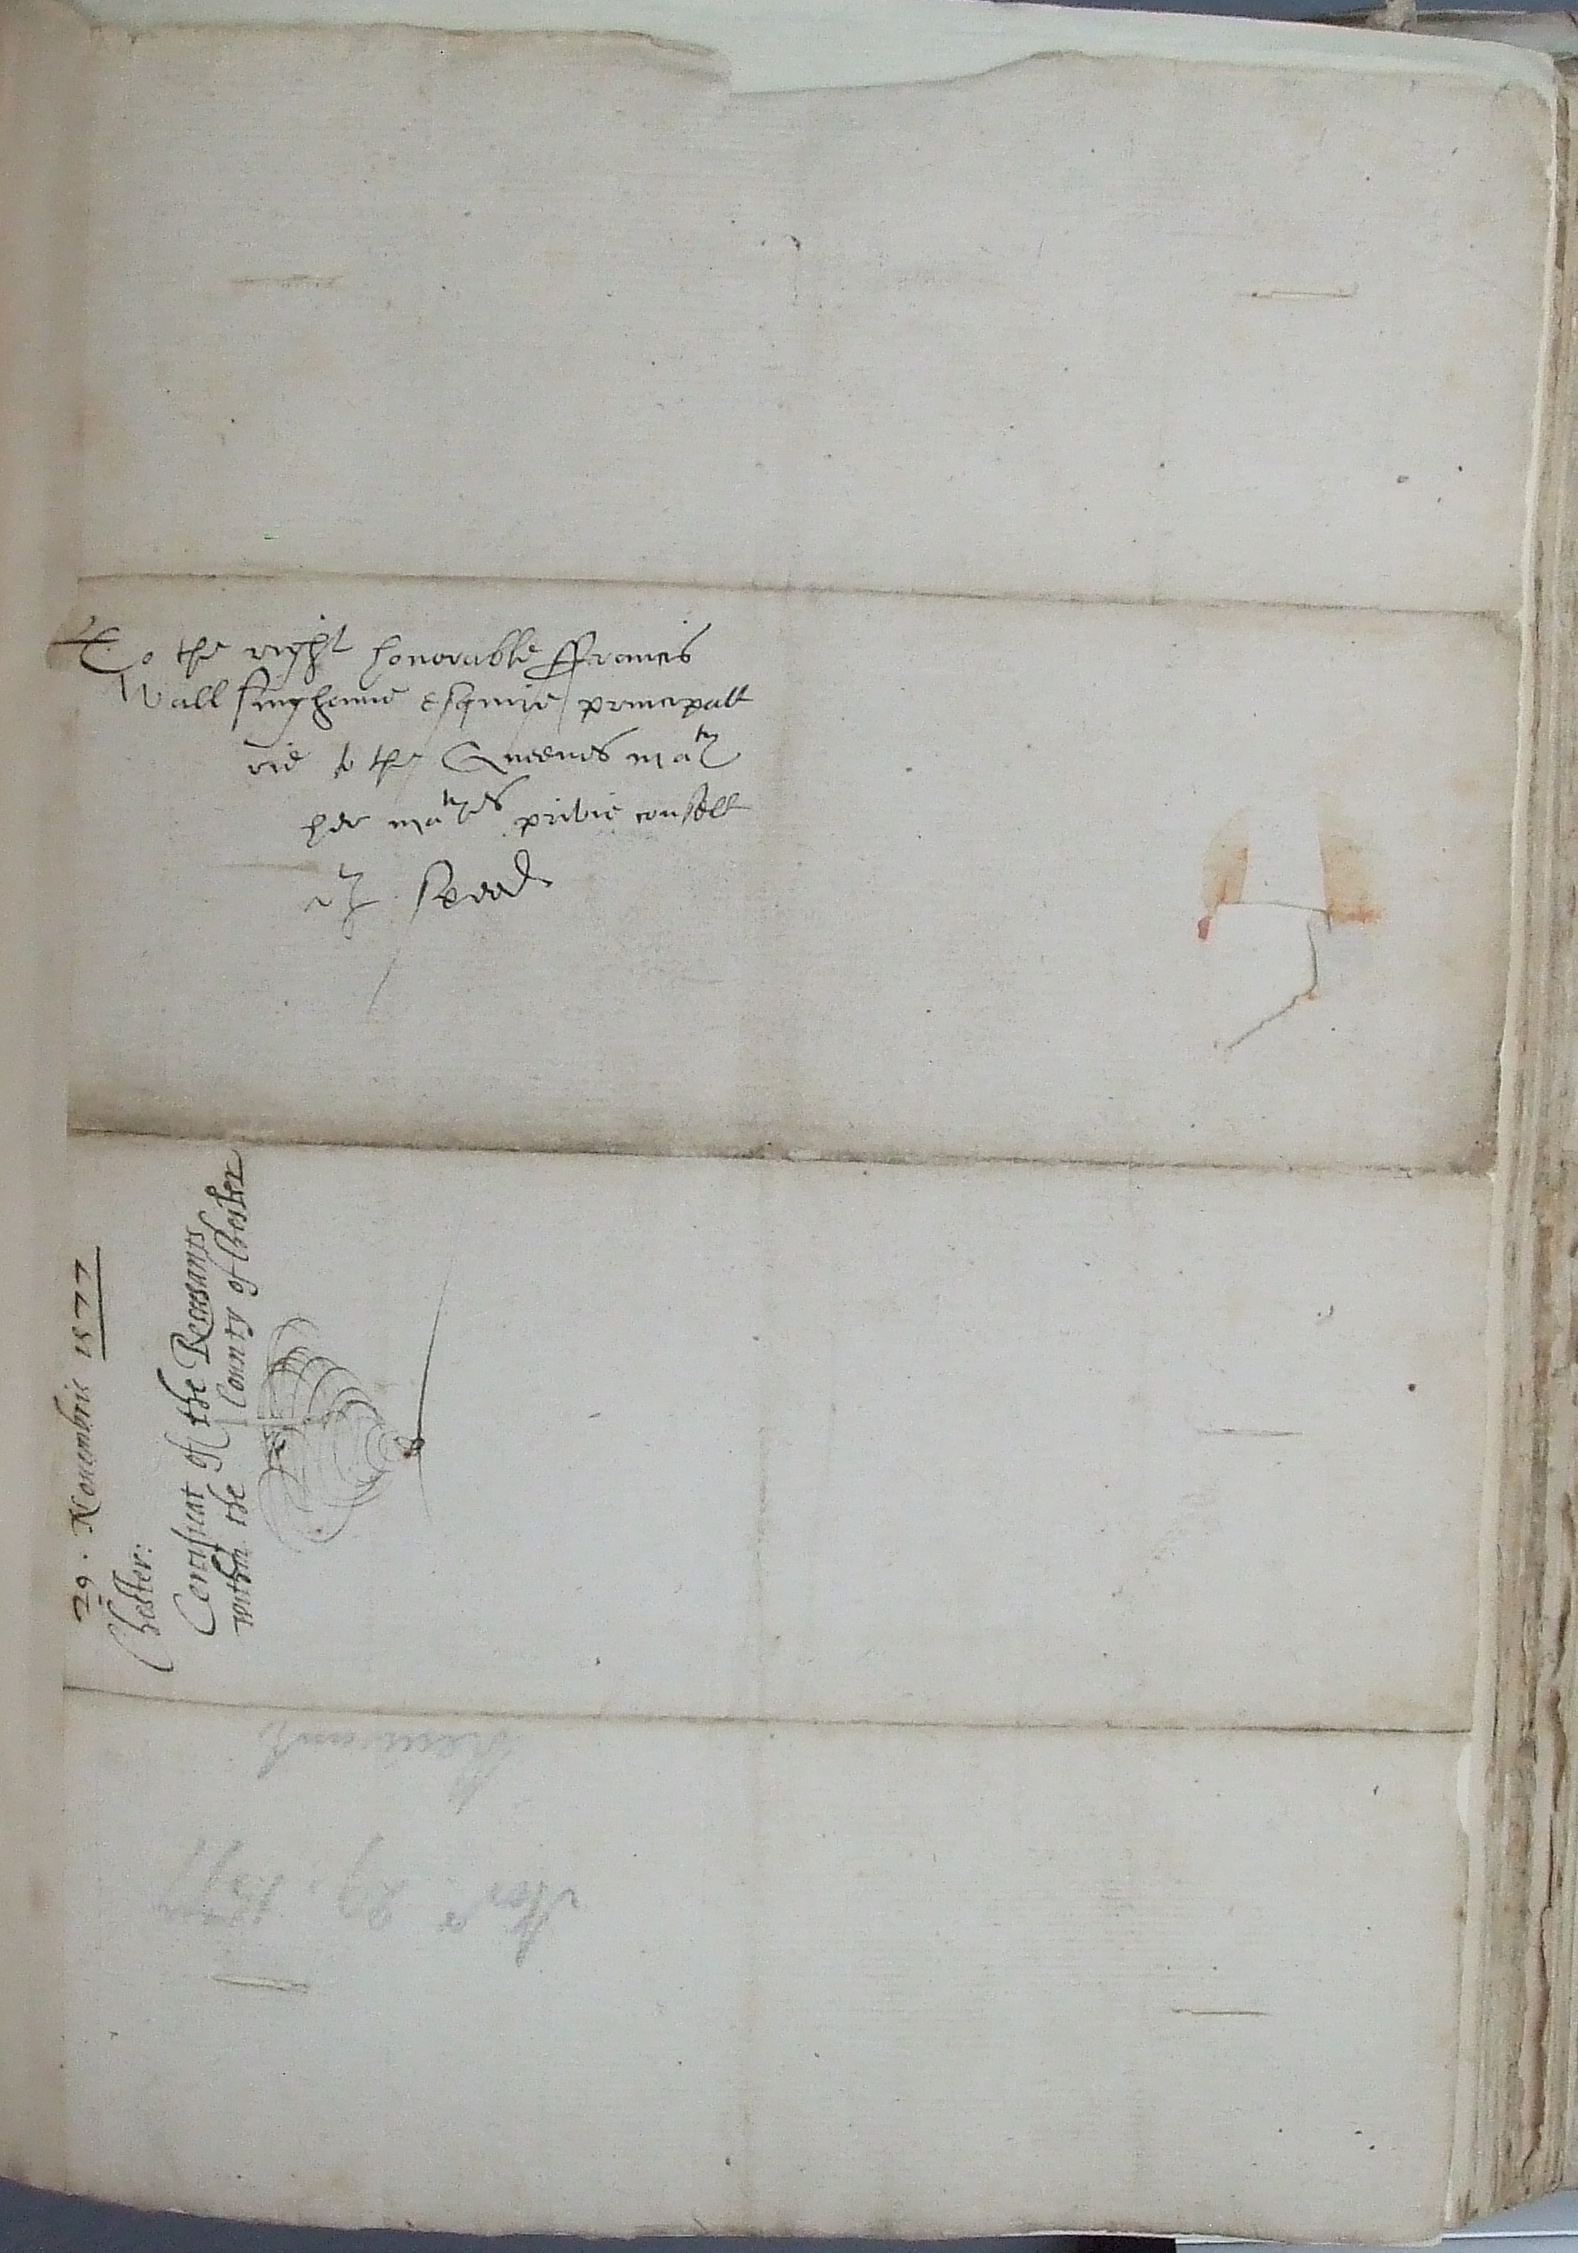 To the right honorable ffrancis
Wallsinghame esquire principall
rie to the Queenes ma^tie
her ma^ties privie consell
29. Novembris 1577
Chester:
Certificat of the Recusants
within the County of Chester
Recusants
Nov^r 29. 1577